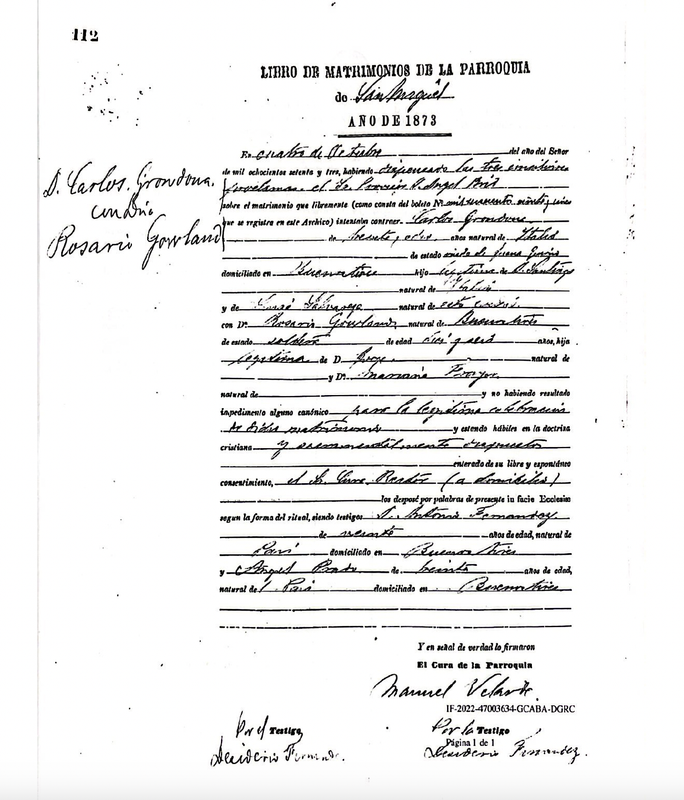 112
LIBRO DE MATRIMONIOS DE LA PARROQUIA
de San Miguel
AÑO DE 1873
D. Carlos Grondona
con Dña
Rosario Gowland
En cuatro de Octubre del año del Señor
de mil ochocientos setenta y tres, habiendo dispensado las tres conciliares
proclamas el Sr. D. Angel
sobre el matrimonio que libremente (como consta del boleto Nº mil
que se registra en este Archivo) intentaba contraer. Carlos Grondona
de treinta y años natural de Italia
de estado
domiciliado en Buenos Aires hijo legítimo de D. Santiago
natural de Italia
y de natural de
con Dª Rosario Gowland natural de Buenos Aires
de estado soltera de edad años, hija
legítima de D. natural de
y Dª
natural de y no habiendo resultado
impedimento alguno canónico para la legítima celebracion
de dicho matrimonio y estando hábiles en la doctrina
cristiana y sacramentalmente dispuestos
enterado de su libre y espontáneo
consentimiento, el Sr. Cura Rector (a domicilio)
los desposé por palabras de presente in facie Ecclesiæ
segun la forma del ritual, siendo testigos D. Antonio Fernandez
de veinte años de edad, natural de
Pais domiciliado en Buenos Aires
y Angel Prado de treinta años de edad,
natural del Pais domiciliado en Buenos Aires
Y en señal de verdad lo firmaron
El Cura de la Parroquia
Manuel Velarde
IF-2022-47003634-GCABA-DGRC
Por el Testigo, Por la Testigo
Página 1 de 1
Desiderio Fernandez Desiderio Fernandez.